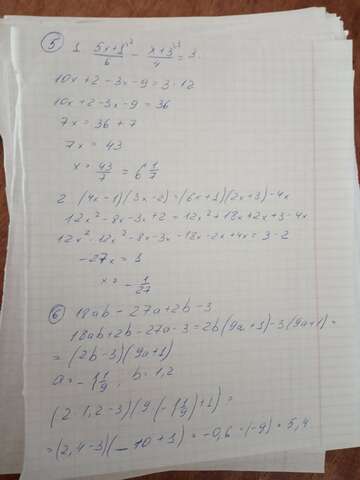 5 1 5x+1²/6 - x+3³/4 = 3.
10x+2-3x-9=3·12
10x+2-3x-9=36
7x=36+7
7x=43
x=43/7=6 1/7
2 (4x-1)(3x-2)=(6x+1)(2x+3)-4x
12x²-8x-3x+2=12x²+18x+2x+3-4x
12x²-12x²-8x-3x-18x-2x+4x=3-2
-27x=1
x=-1/27
6 18ab-27a+2b-3
18ab+2b-27a-3=2b(9a+1)-3(9a+1)=
=(2b-3)(9a+1)
a=-1 1/9; b=1,2
(2·1,2-3)(9·(-1 1/9)+1)=
=(2,4-3)(-10+1)=-0,6·(-9)=5,4